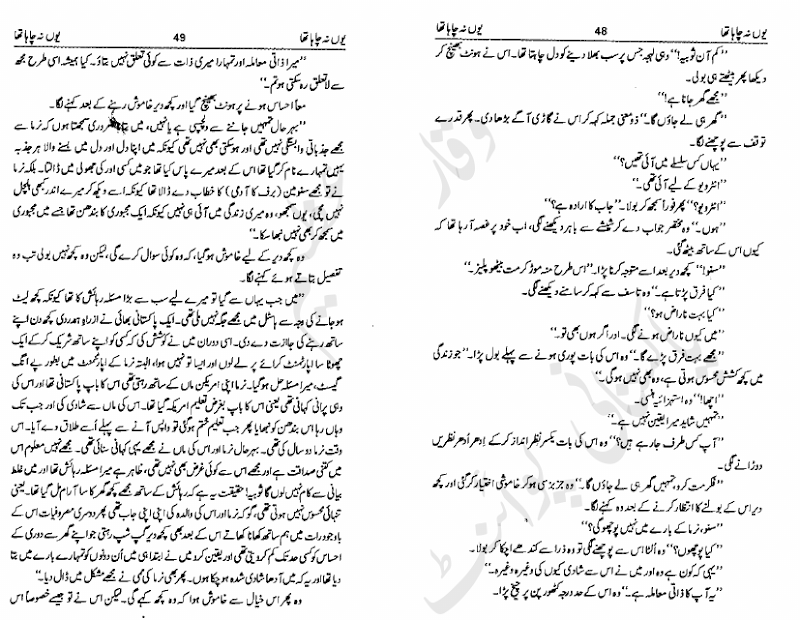 یوں نہ چاہا تھا 48 یوں نہ چاہا تھا
”کم آن ثوبیہ!“ وہی لہجہ جس پر سب بھلا دینے کو دل چاہتا تھا۔ اس نے ہونٹ بھینچ کر
دیکھا پھر بیٹھتے ہی بولی۔
”مجھے گھر جانا ہے!“
”گھر ہی لے جاؤں گا۔“ ذومعنی جملہ کہہ کر اس نے گاڑی آگے بڑھا دی۔ پھر قدرے
توقف سے پوچھنے لگا۔
”یہاں کس سلسلے میں آئی تھیں؟“
”انٹرویو کے لیے آئی تھی۔“
”انٹرویو؟“ پھر فوراً سمجھ کر بولا۔ ”جاب کا ارادہ ہے؟“
”ہوں۔“ وہ مختصر جواب دے کر شیشے سے باہر دیکھنے لگی، اب خود پر غصہ آ رہا تھا کہ
کیوں اس کے ساتھ بیٹھ گئی۔
”سنو!“ کچھ دیر بعد اسے متوجہ کرنا پڑا۔ ”اس طرح منہ موڑ کر مت بیٹھو پلیز۔“
”کیا فرق پڑتا ہے۔“ وہ تاسف سے کہہ کر سامنے دیکھنے لگی۔
”کیا بہت ناراض ہو؟“
”میں کیوں ناراض ہونے لگی۔ اور اگر ہوں بھی تو۔“
”مجھے بہت فرق پڑے گا۔“ وہ اس کی بات پوری ہونے سے پہلے بول پڑا۔ ”جو زندگی
میں کچھ کشش محسوس ہوتی ہے، وہ بھی نہیں ہو گی۔“
”اچھا!“ وہ استہزائیہ ہنسی۔
”تمہیں شاید میرا یقین نہیں ہے۔“
”آپ کس طرف جا رہے ہیں؟“ وہ اس کی بات یکسر نظر انداز کر کے اِدھر اُدھر نظریں
دوڑانے لگی۔
”فکر مت کرو، تمہیں گھر ہی لے جاؤں گا۔“ وہ جزبز سی ہو کر خاموشی اختیار کر گئی اور کچھ
دیر اس کے بولنے کا انتظار کرنے کے بعد وہ کہنے لگا۔
”سنو، نرما کے بارے میں نہیں پوچھو گی؟“
”کیا پوچھوں؟“ وہ اُلٹا اس سے پوچھنے لگی تو وہ ذرا سے کندھے اچکا کر بولا۔
”یہی کہ کون ہے وہ اور میں نے اس سے شادی کیوں کی وغیرہ وغیرہ۔“
”یہ آپ کا ذاتی معاملہ ہے۔“ وہ اس کے حد درجہ کٹھور پن پر چیخ پڑا۔
یوں نہ چاہا تھا 49 یوں نہ چاہا تھا
”میرا ذاتی معاملہ اور تمہارا میری ذات سے کوئی تعلق نہیں بتاؤ۔ کیا ہمیشہ اسی طرح مجھ
سے لاتعلق رہ سکتی ہو تم۔“
معاً احساس ہونے پر ہونٹ بھینچ گیا اور کچھ دیر خاموش رہنے کے بعد کہنے لگا۔
”بہرحال تمہیں جاننے سے دلچسپی ہے یا نہیں، میں بتانا ضروری سمجھتا ہوں کہ نرما سے
مجھے جذباتی وابستگی نہیں تھی اور ہو سکتی بھی نہیں تھی کیونکہ میں اپنا دل اور دل میں بسنے والا ہر جذبہ
یہیں تمہارے نام کر گیا تھا اس کے بعد میرے پاس کیا تھا جو میں کسی اور کی جھولی میں ڈالتا۔ بلکہ نرما
نے تو مجھے سنو مین (برف کا آدمی) کا خطاب دے ڈالا تھا کیونکہ اسے دیکھ کر میرے اندر کبھی ہلچل
نہیں مچی، یوں سمجھو، وہ میری زندگی میں آئی ہی نہیں کیونکہ ایک مجبوری کا بندھن تھا جسے میں مجبوری
میں سمجھ کر بھی نہیں نبھا سکا۔“
وہ کچھ دیر کے لیے خاموش ہو گیا، کہ وہ کوئی سوال کرے گی، لیکن وہ کچھ نہیں بولی تب وہ
تفصیل بتاتے ہوئے کہنے لگا۔
”میں جب یہاں سے گیا تو میرے لیے سب سے بڑا مسئلہ رہائش کا تھا کیونکہ کچھ لیٹ
ہو جانے کی وجہ سے ہاسٹل میں مجھے جگہ نہیں ملی تھی۔ ایک پاکستانی بھائی نے ازراہِ ہمدردی کچھ دن اپنے
ساتھ رہنے کی جاازت دے دی۔ اسی دوران میں نے کوشش کی کہ کسی کو اپنے ساتھ شریک کر کے ایک
چھوٹا سا اپارٹمنٹ کرائے پر لے لوں اور ایسا تو نہیں ہوا، البتہ نرما کے اپارٹمنٹ میں بطور پے انگ
گیسٹ میرا مسئلہ حل ہو گیا۔ نرما اپنی امریکن ماں کے ساتھ رہتی تھی اس کا باپ پاکستانی تھا اور اس کی
وہی پرانی کہانی تھی یعنی اس کا باپ بغرض تعلیم امریکہ گیا تھا۔ اس کی ماں سے شادی کی اور جب تک
وہاں رہا اس بندھن کو نبھایا پھر جب تعلیم ختم ہو گئی تو واپس آنے سے پہلے اُسے طلاق دے آیا۔ اس
وقت نرما دو سال کی تھی۔ بہرحال نرما اور اس کی ماں نے مجھے یہی کہانی سنائی تھی۔ مجھے نہیں معلوم اس
میں کتنی صداقت ہے اور مجھے اس سے کوئی غرض بھی نہیں تھی، ظاہر ہے میرا مسئلہ رہائش تھا اور میں غلط
بیانی سے کام نہیں لوں گا ثوبیہ! حقیقت یہ ہے کہ رہائش کے ساتھ مجھے کچھ گھر کا سا آرام مل گیا تھا۔ یعنی
تنہائی محسوس نہیں ہوتی تھی، گو کہ نرما اور اس کی والدہ کی اپنی اپنی جاب تھی پھر دوسری مصروفیات اس کے
باوجود رات میں ہم ساتھ کھانا کھاتے اس کے بعد بھی کچھ دیر گپ شپ رہتی جو اپنے گھر سے دوری کے
احساس کو کسی حد تک کم کر دیتی تھی اور یقین کرو میں نے ابتدا ہی میں اُن دونوں کو تمہارے بارے میں بتا
دیا تھا اور یہ کہ میں آدھا شادی شدہ ہو چکا ہوں۔ پھر بھی نرما کی ممی نے مجھے مشکل میں ڈال دیا۔“
وہ پھر اس خیال سے خاموش ہوا کہ وہ کچھ کہے گی۔ لیکن اس نے تو جیسے خصوصاً اس